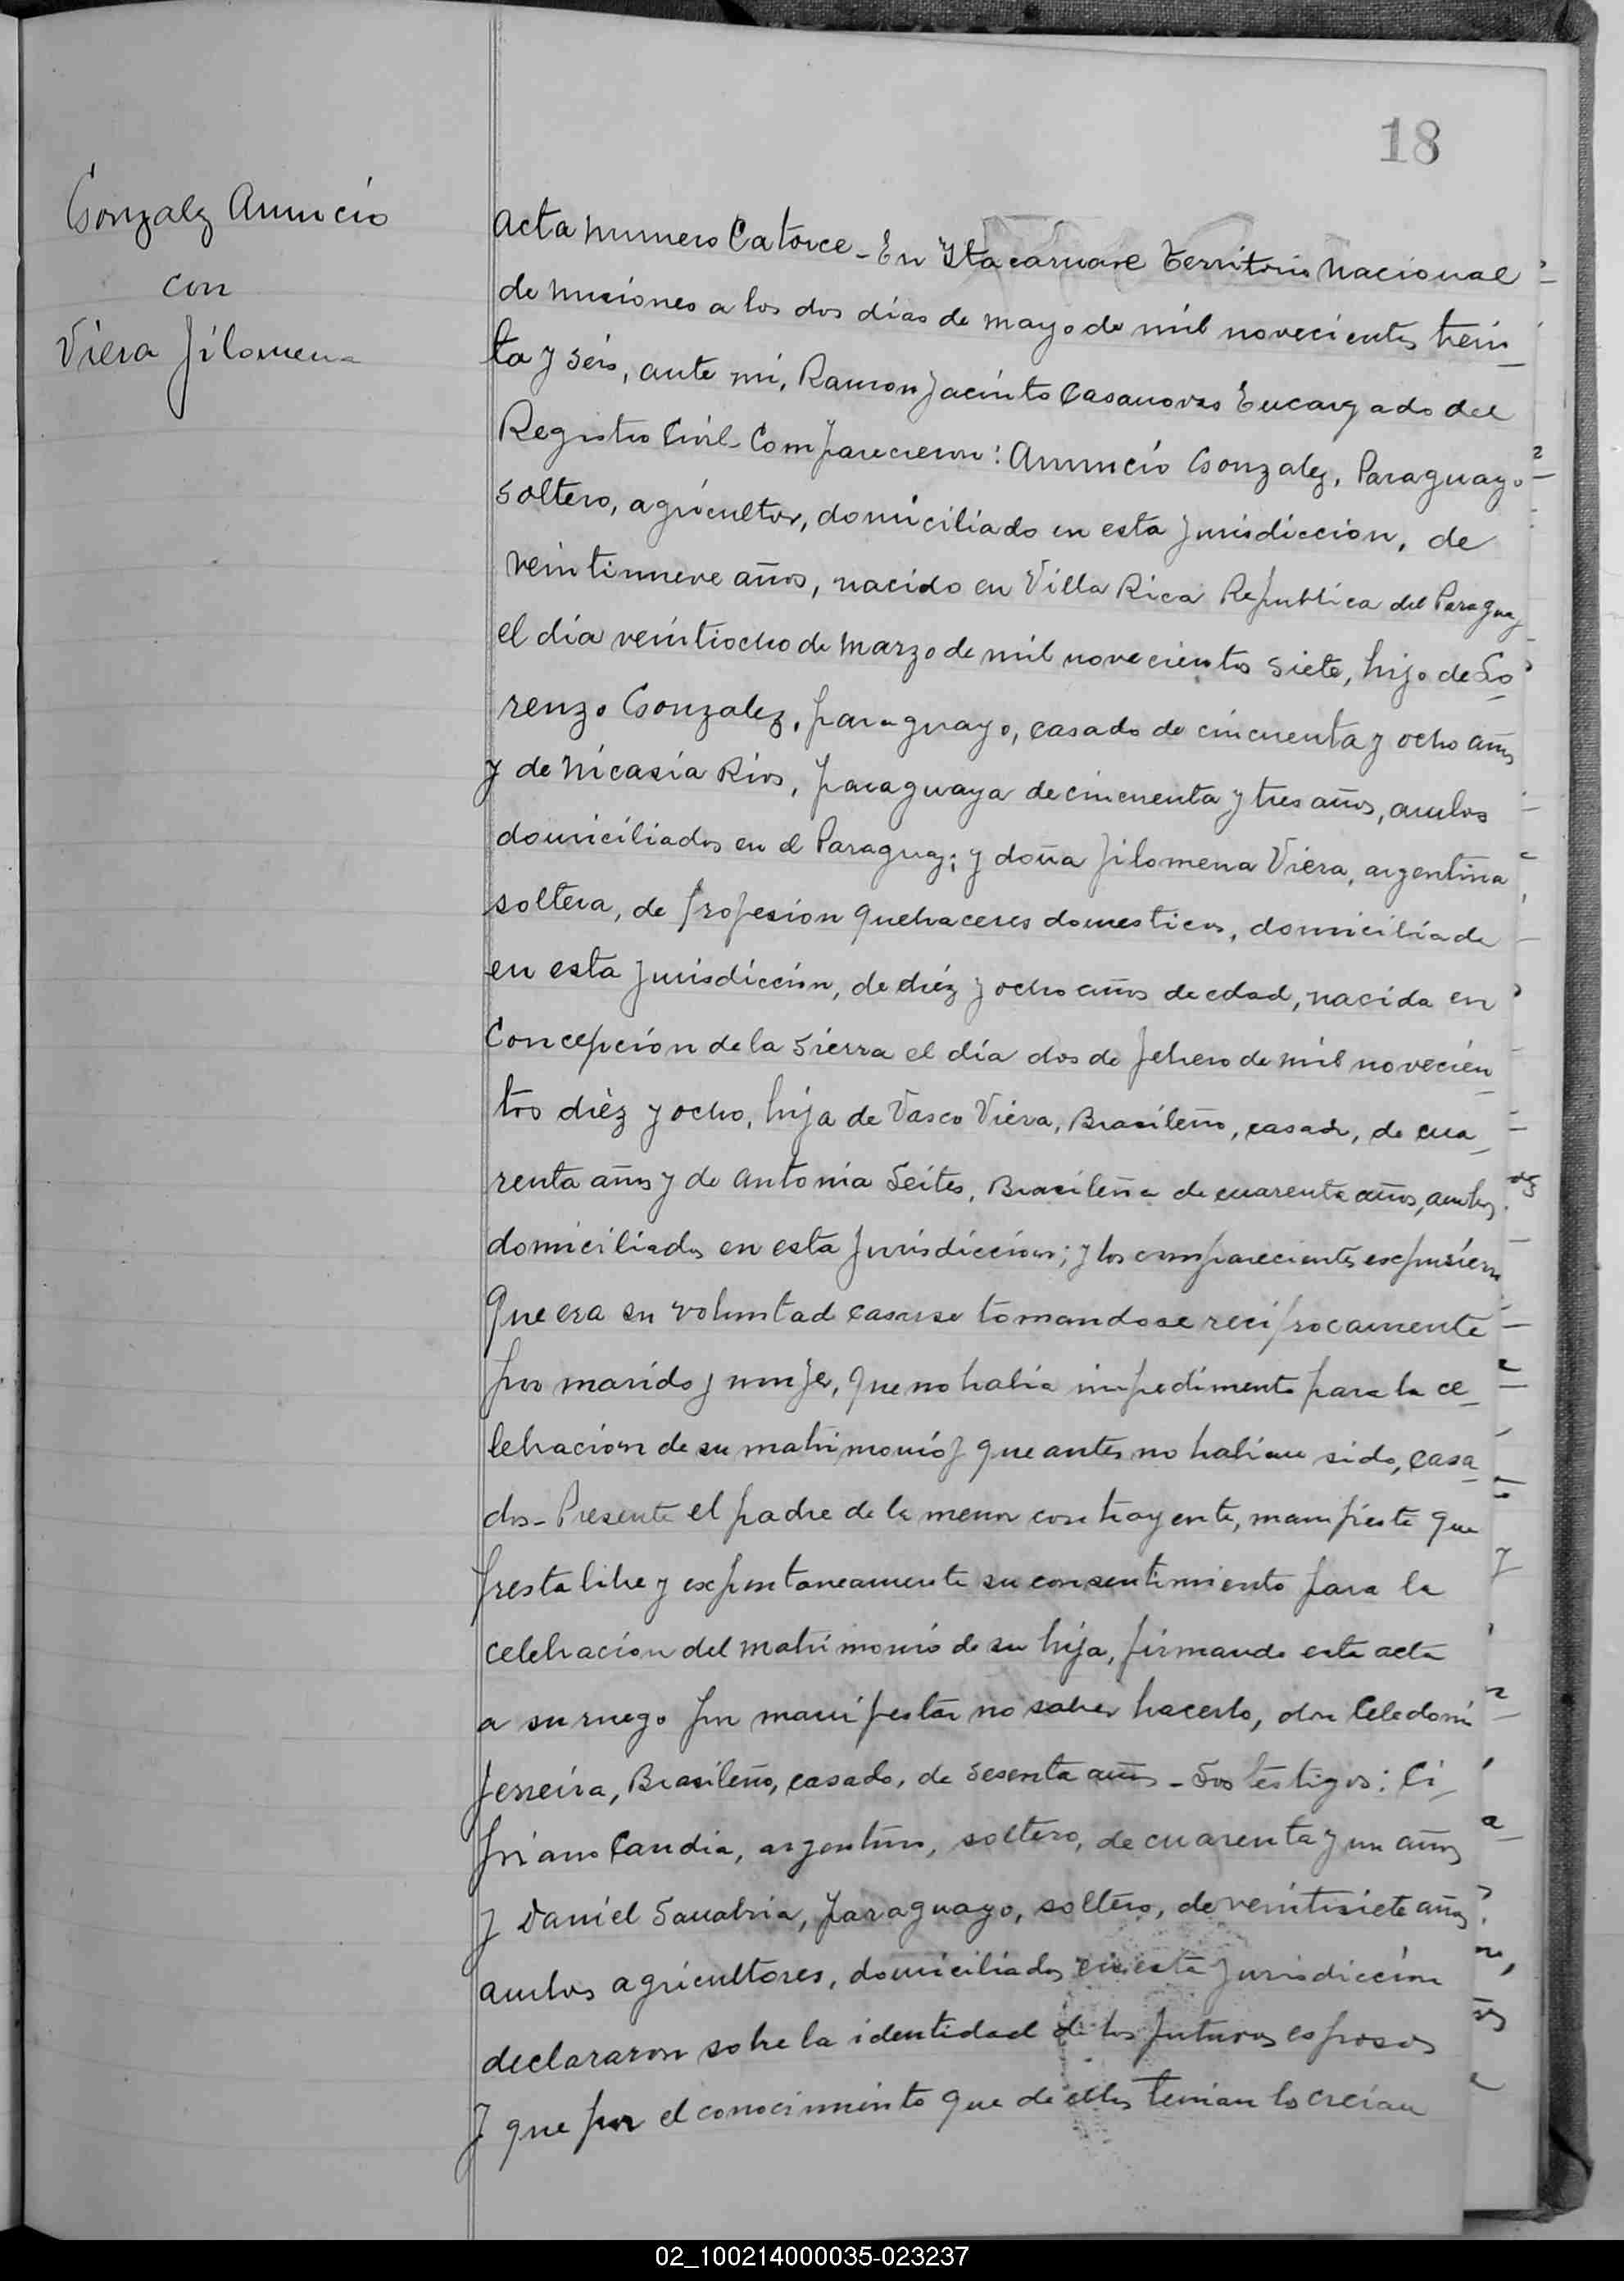 18
Gonzalez Anuncio
con
Viera Filomena
Acta numero Catorce - En Itacaruare Territorio Nacional
de misiones a los dos días de mayo de mil novecientos trein
ta y seis, ante mi, Ramon Jacinto Casanovas Encargado del
Registro Civil - Comparecieron: Anuncio Gonzalez, Paraguayo
soltero, agricultor, domiciliado en esta jurisdiccion, de
veintinueve años, nacido en Villa Rica Republica del Paraguay
el día veintiocho de Marzo de mil novecientos siete, hijo de Lo
renzo Gonzalez, paraguayo, casado de cincuenta y ocho años
y de Nicasia Rios, paraguaya de cincuenta y tres años, ambos
domiciliados en el Paraguay; y doña Filomena Viera, argentina
soltera, de profesion quehaceres domesticos, domiciliada
en esta jurisdicción, de diéz y ocho años de edad, nacida en
Concepción de la Sierra el día dos de febrero de mil novecien
tos diéz y ocho, hija de Vasco Viera, Brasileño, casado, de cua
renta años y de Antonia Seites, Brasileña de cuarenta años, ambos
domiciliados en esta jurisdiccion; y los comparecientes expusieron
Que era su voluntad casarse tomandose reciprocamente
por marido y mujer, que no habia impedimento para la ce
lebracion de su matrimonio y que antes no habian sido, casa
dos - Presente el padre de la menor contrayente, manifiesta que
presta libre y expontaneamente su consentimiento para la
celebracion del matrimonio de su hija, firmando esta acta
a su ruego por manifestar no saber hacerlo, don Celedoni
Ferreira, Brasileño, casado, de sesenta años - Los testigos: Ci
priano Candia, argentino, soltero, de cuarenta y un años
y Daniel Sanabria, paraguayo, soltero, de veintisiete años
ambos agricultores, domiciliados en esta jurisdiccion
declararon sobre la identidad de los futuros esposos
y que por el conocimiento que de ellos tenian los creian
02_100214000035-023237